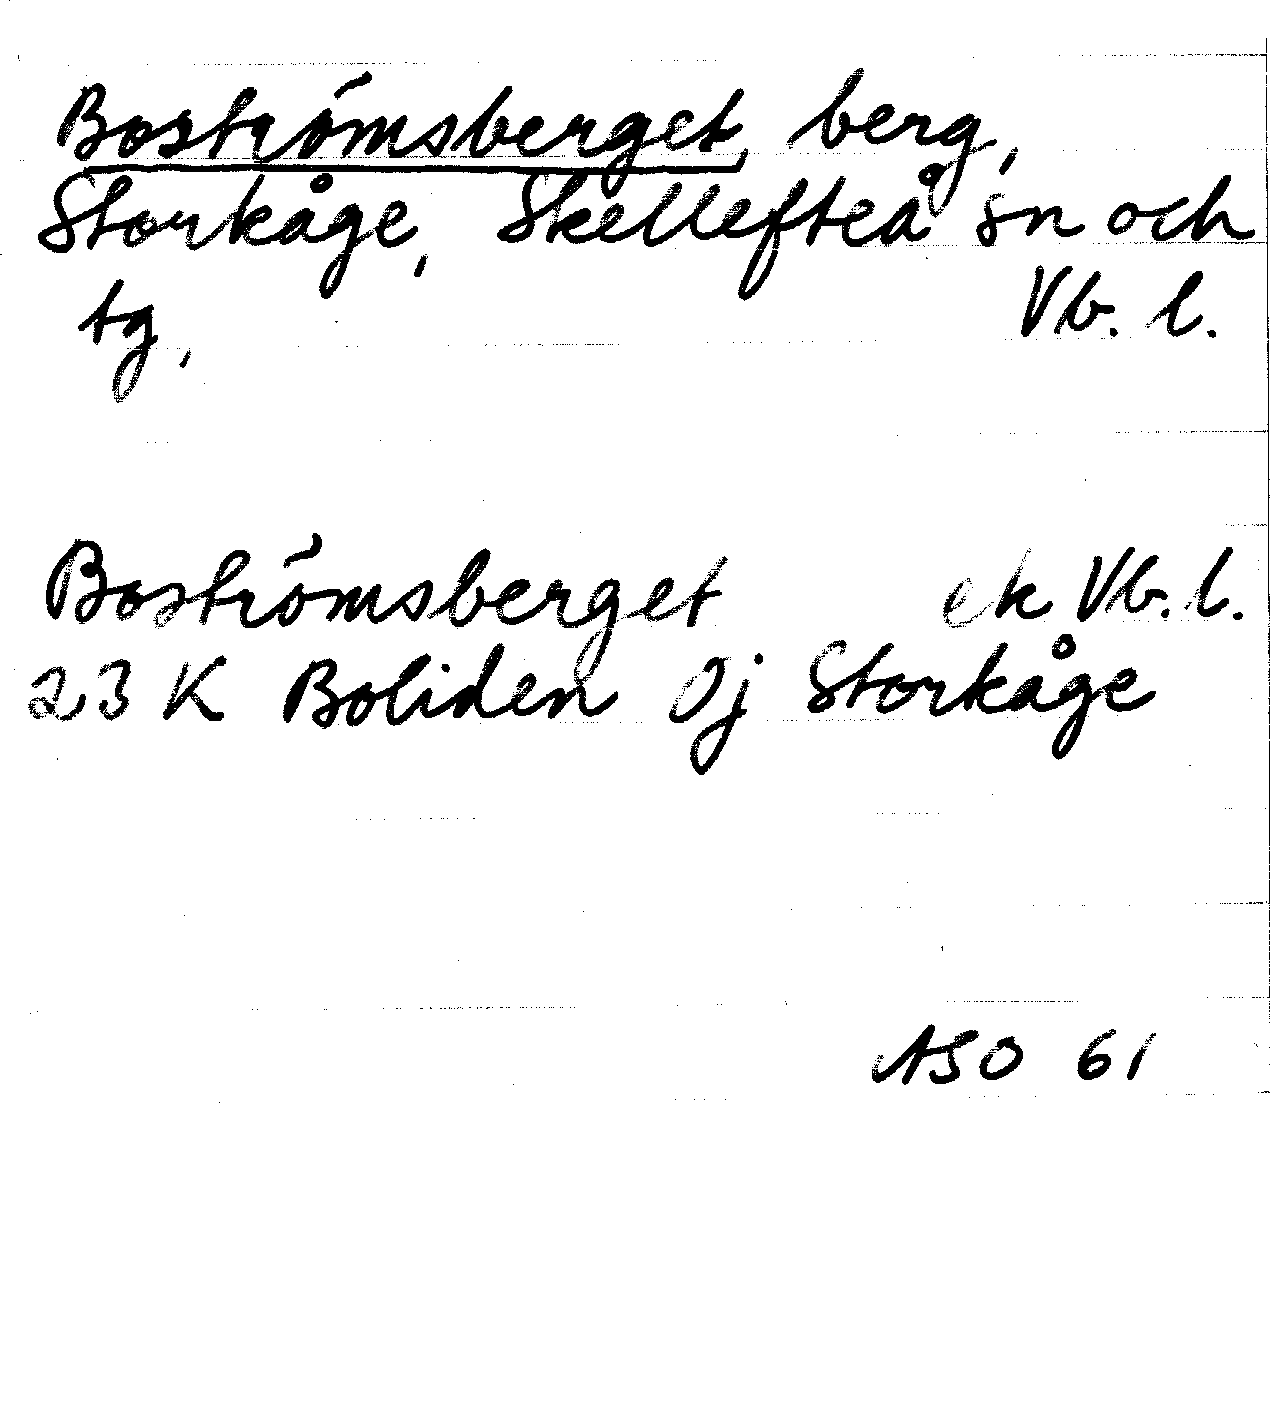 Boströmsberget, berg,
Storkåge, Skellefteå sn och
tg, Vb. l.
Boströmsberget ek Vb. l.
23 K Boliden 0j Storkåge
ASO 61